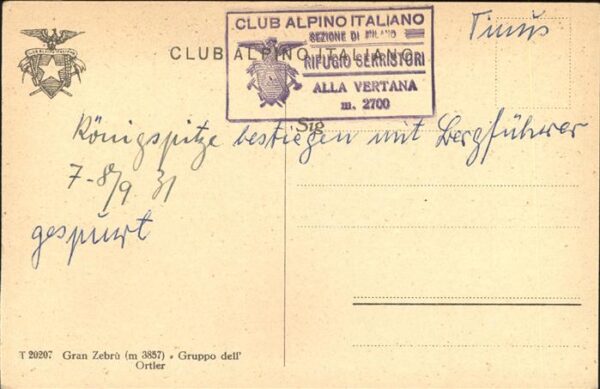 CLUB ALPINO ITALIANO
CLUB ALPINO ITALIANO
SEZIONE DI MILANO
RIFUGIO SERRISTORI
ALLA VERTANA
m. 2700
Sig
Königspitze bestiegen mit Bergführer
7-8/9 31
gespurt
T 20207 Gran Zebrù (m 3857) - Gruppo dell'
Ortler